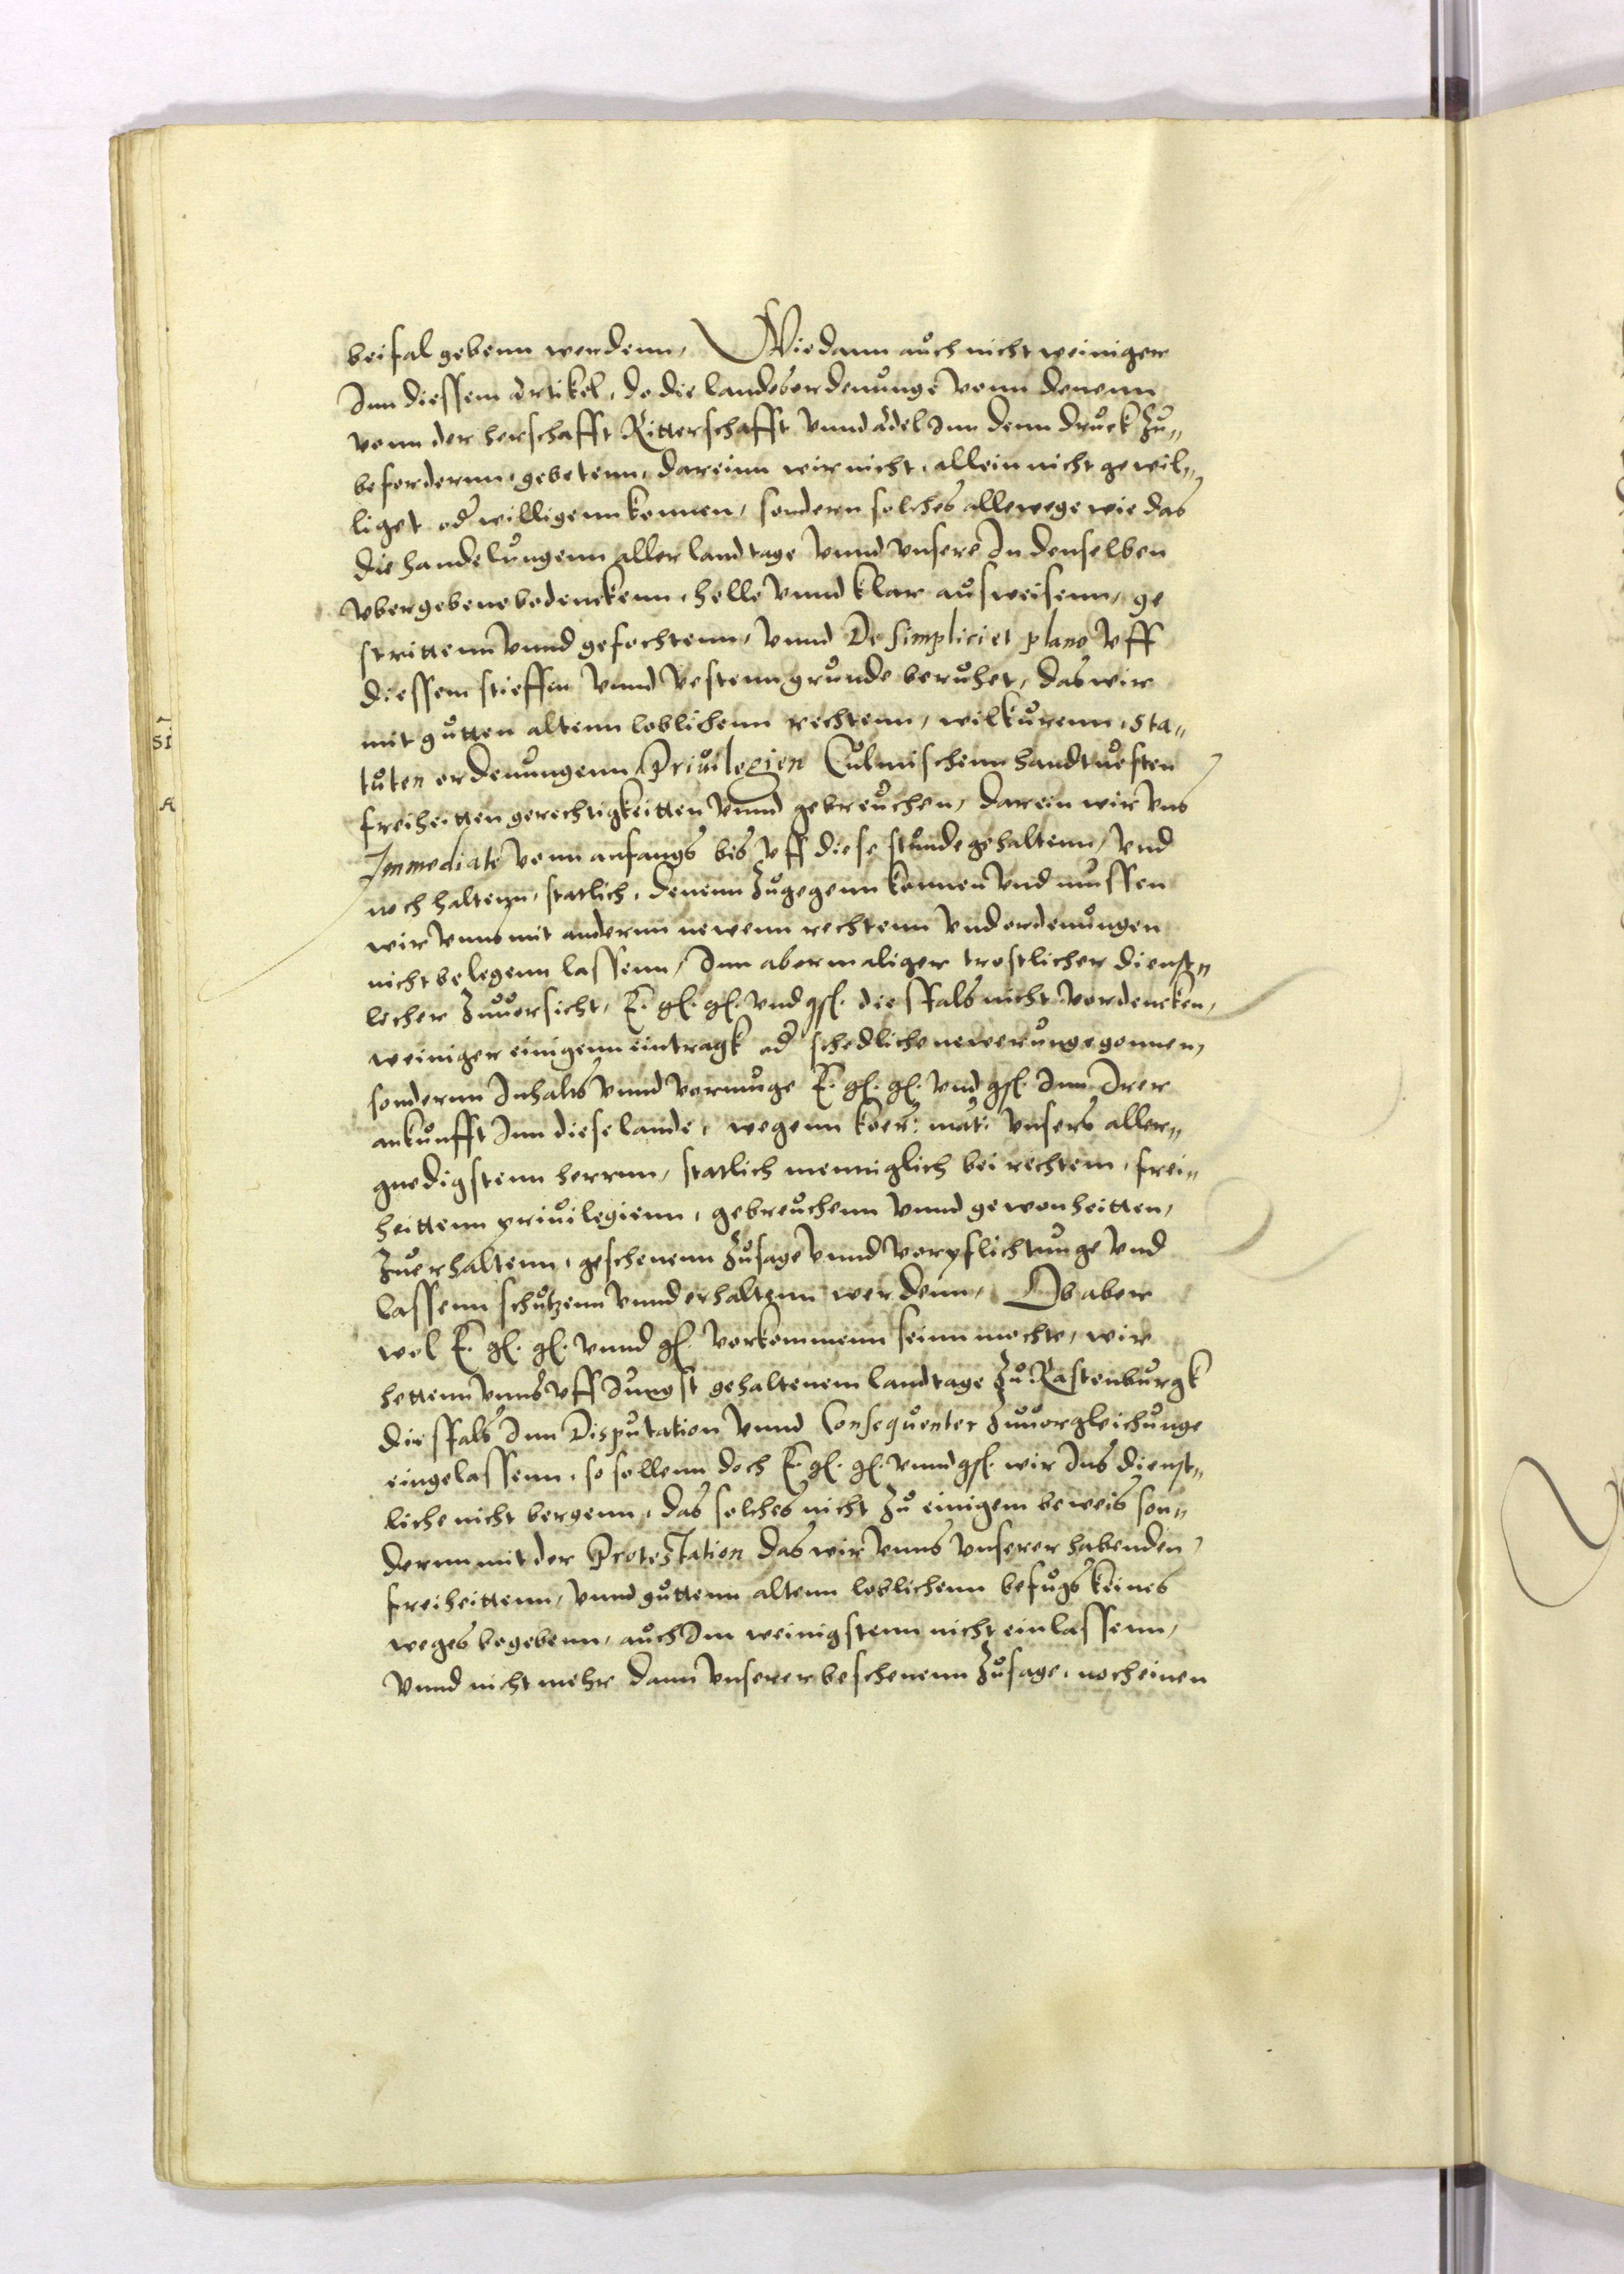 beifal gebenn werdenn, Wie dann auch nicht weiniger
Inn diessem Artikel, do die landesordenunge vonn denenn
vonn der herschafft Ritterschafft vnnd Adel Inn denn druck zu„
befordernn, gebetenn, dareinn wir nicht, allein nicht gewil„
liget od willigenn konnen, sondern solches allewege wie das
die handelungenn aller landtage vnnd vnsere In denselben
vbergebene bedenckenn, helle vnnd klar ausweisenn, ge
strittenn vnnd gefochtenn, vnnd De simplici et plano vff
diessem stieffen vnnd vestenn grunde beruhet, das wir
mit gutten altenn loblichenn rechtenn, wilkurenn, sta„
tuten ordenungenn Priuilegien Culmischenn handtuesten
freiheitten gerechtigkeitten vnnd gebreuchen, darein wir vns
Immediate vonn anfangs bis vff diese stunde gehaltenn, vnd
noch haltenn, statlich, denenn zugegenn konnen vnd mussen
wir vnns mit andernn newenn rechtenn vnd ordenungen
nicht belegenn lassenn, Inn abermaliger trostlicher dienst„
licher zuuorsicht, E. gl. gl. vnd gl. diesfals nicht vordencken,
weiniger einigenn eintragk od schedliche newerunge gonnen,
sondernn Inhalts vnnd vormuge E. gl. gl. vnd gl. Inn Irer
ankunfft Inn diese lande, wegenn koer: mat: vnsers aller„
gnedigstenn herrnn, statlich menniglich bei rechtem, frei„
heittenn priuilegienn, gebreuchenn vnnd gewonheitten,
zuerhaltenn, geschenenn zusage vnnd vorpflichtunge vnd
lassenn schutzenn vnnd erhaltenn werdenn, Ob aber
wol E. gl. gl. vnnd gl. vorkommenn seinn mochte, wir
hettenn vnns vff Jungst gehaltenem landtage zu Rastenburgk
diesfals Inn Disputation vnnd Consequenter zuuorgleichunge
eingelassenn, so sollenn doch E. gl. gl. vnnd gl. wir Ins dienst„
liche nicht bergenn, das solches nicht zu einigem beweis son„
dernn mit der Protestation das wir vnns vnserer habenden
freiheittenn, vnnd guttenn altenn loblichenn befugs keines
weges begebenn, auch Im weinigstenn nicht einlassenn,
vnnd nicht mehr dann vnserer beschenenn zusage, noch einen